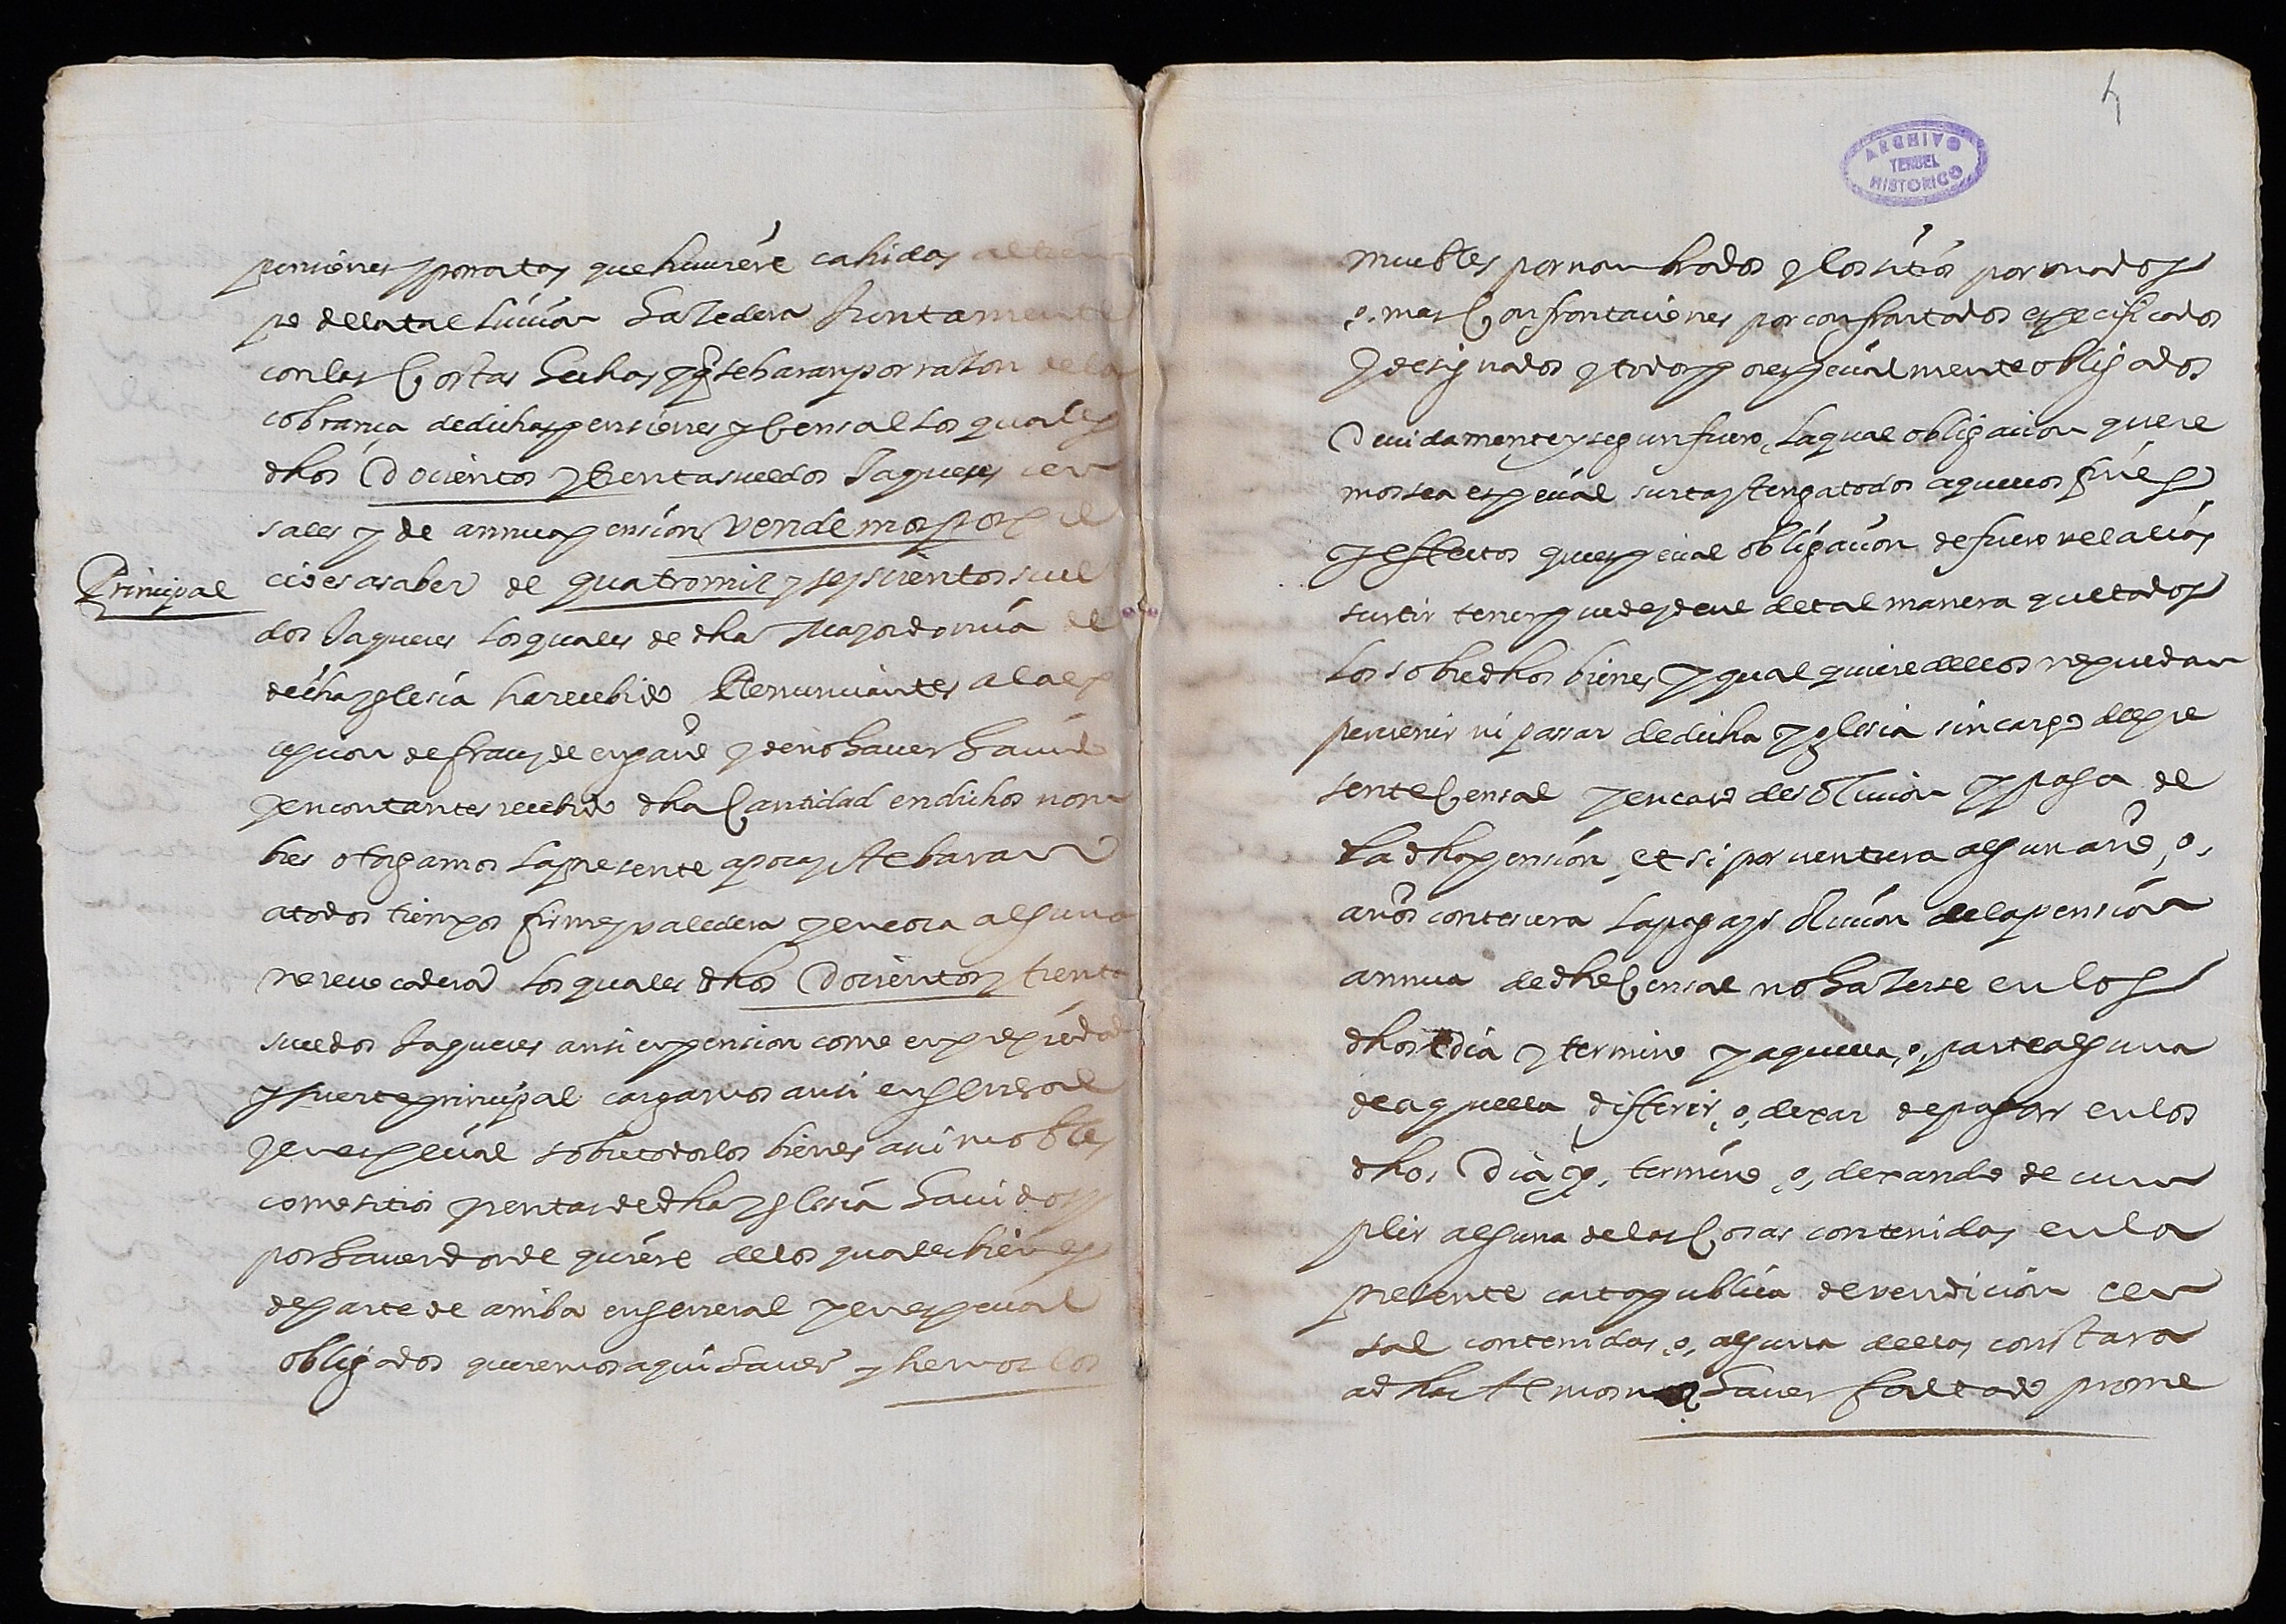 pensiones y porratas que huuiere cahidas al tiem
po de la tal luicion hazedera Juntamente
con las Costas hechas y q se haran por razon de la
cobrança de dichas pensiones y Censal los quales
dhos Docientos y trenta sueldos Jaqueses cen
sales y de annua pension vendemos por pre
cio es a saber de quatro mil y seyscientos suel
Principal
dos Jaqueses los quales de dha Mayordomia el
dicha yglesia ha recebido Renunciantes a la ex
cepcion de frau y de engaño y de no hauer hauido
y en contantes recebido dha Cantidad en dichos nom
bres otorgamos la presente apoca albaran
a todos tiempos firme y valedera y en cosa alguna
no reuocadera los quales dhos Docientos y trenta
sueldos Jaqueses ansi en pension como en propiedad
y suerte principal cargamos ansi en general
y en especial sobre todos los bienes ansi mobles
como sitios y rentas de dha yglesia hauidos y
por hauer donde quiere de los quales bienes
de parte de arriba en general y en especial
obligados queremos aqui hauer y hemos los
4
ARCHIVO
HISTORICO
TERUEL
muebles por nombrados y los sitios por vna dos
o, mas Confrontaciones por confrontados especificados
y designados y todos por especialmente obligados
Deuidamente y segun fuero, la qual obligacion quere
mos sea especial surta y tenga todos aquellos fines
y effectos que especial obligacion de fuero vel alias
surtir tener puede y deue de tal manera que todos
los sobredhos bienes y qual quiere dellos no puedan
peruenir ni passar de dicha yglesia sin cargo del pre
sente Censal y en caso de solucion y paga de
la dha pension, et si por ventura algun año, o,
años contescera la paga y solucion de la pension
annua de dho Censal no hazerse en los
dhos dia y termino y aquella, o, parte alguna
de aquella differir, o, dexar de pagar en los
dhos Dia, o, termino, o, dexando de cum
plir alguna de las Cosas contenidas en la
presente carta publica de vendicion cen
sal contenidas, o, alguna dellas constara
hauer faltado prome